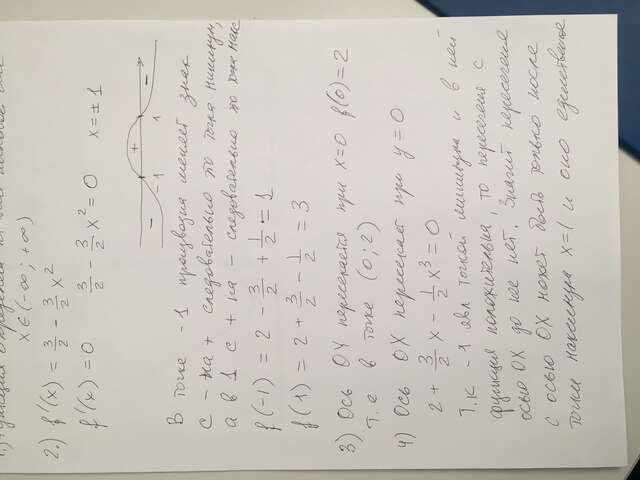 x∈(-∞; +∞)
2.) f'(x) = 3/2 - 3/2 x²
f'(x) = 0   3/2 - 3/2 x² = 0   x = ±1
- -1 + 1 -
В точке -1 производная меняет знак
с - на + следовательно это точка минимум,
а в 1 с + на - следовательно это
f(-1) = 2 - 3/2 + 1/2 = 1
f(1) = 2 + 3/2 - 1/2 = 3
3) Ось OY пересекается при x=0 f(0)=2
т.е в точке (0; 2)
4) Ось OX пересекает при y=0
2 + 3/2 x - 1/2 x³ = 0
Т.к -1 явл точкой минимума и в ней -
функция положительна, то пересечения с
осью OX до нее нет. Значит пересечения
с осью OX может быть только после
точки максимума x=1 и оно единственное